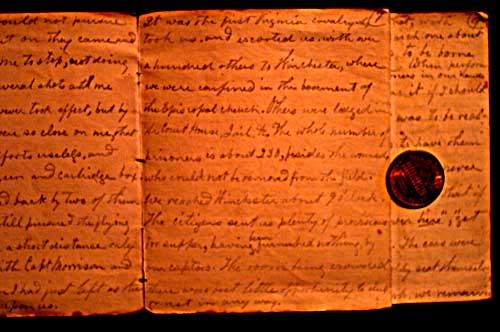 would not pursue
but on they came and
me to stop, not doing
several shots at me
ever took effect, but by
were so close on me, that
efforts useless, and
gun and cartridge box
d back by two of them
still pursued the flying
a short distance only
with Capt Morrison and
and had just left as the
upon us.
7
It was the first Virginia cavalry that
took us, and escorted us with over
a hundred others to Winchester, where
we were confined in the basement of
the Episcopal church. Others were lodged in
the Court House, Jail, &c. The whole number of
prisoners is about 230, besides the wounded
who could not be removed from the field.
We reached Winchester about 9 o'clock.
The citizens sent us plenty of provisions
for supper, having been furnished nothing by
our captors. The room being crowded
there was but little opportunity to
or rest in any way.
with
each one about
to be home
When perform
in our hands
if I should
was to be read
to have them
never
that if
over here", "got
The cars were
seat themselves
we remained